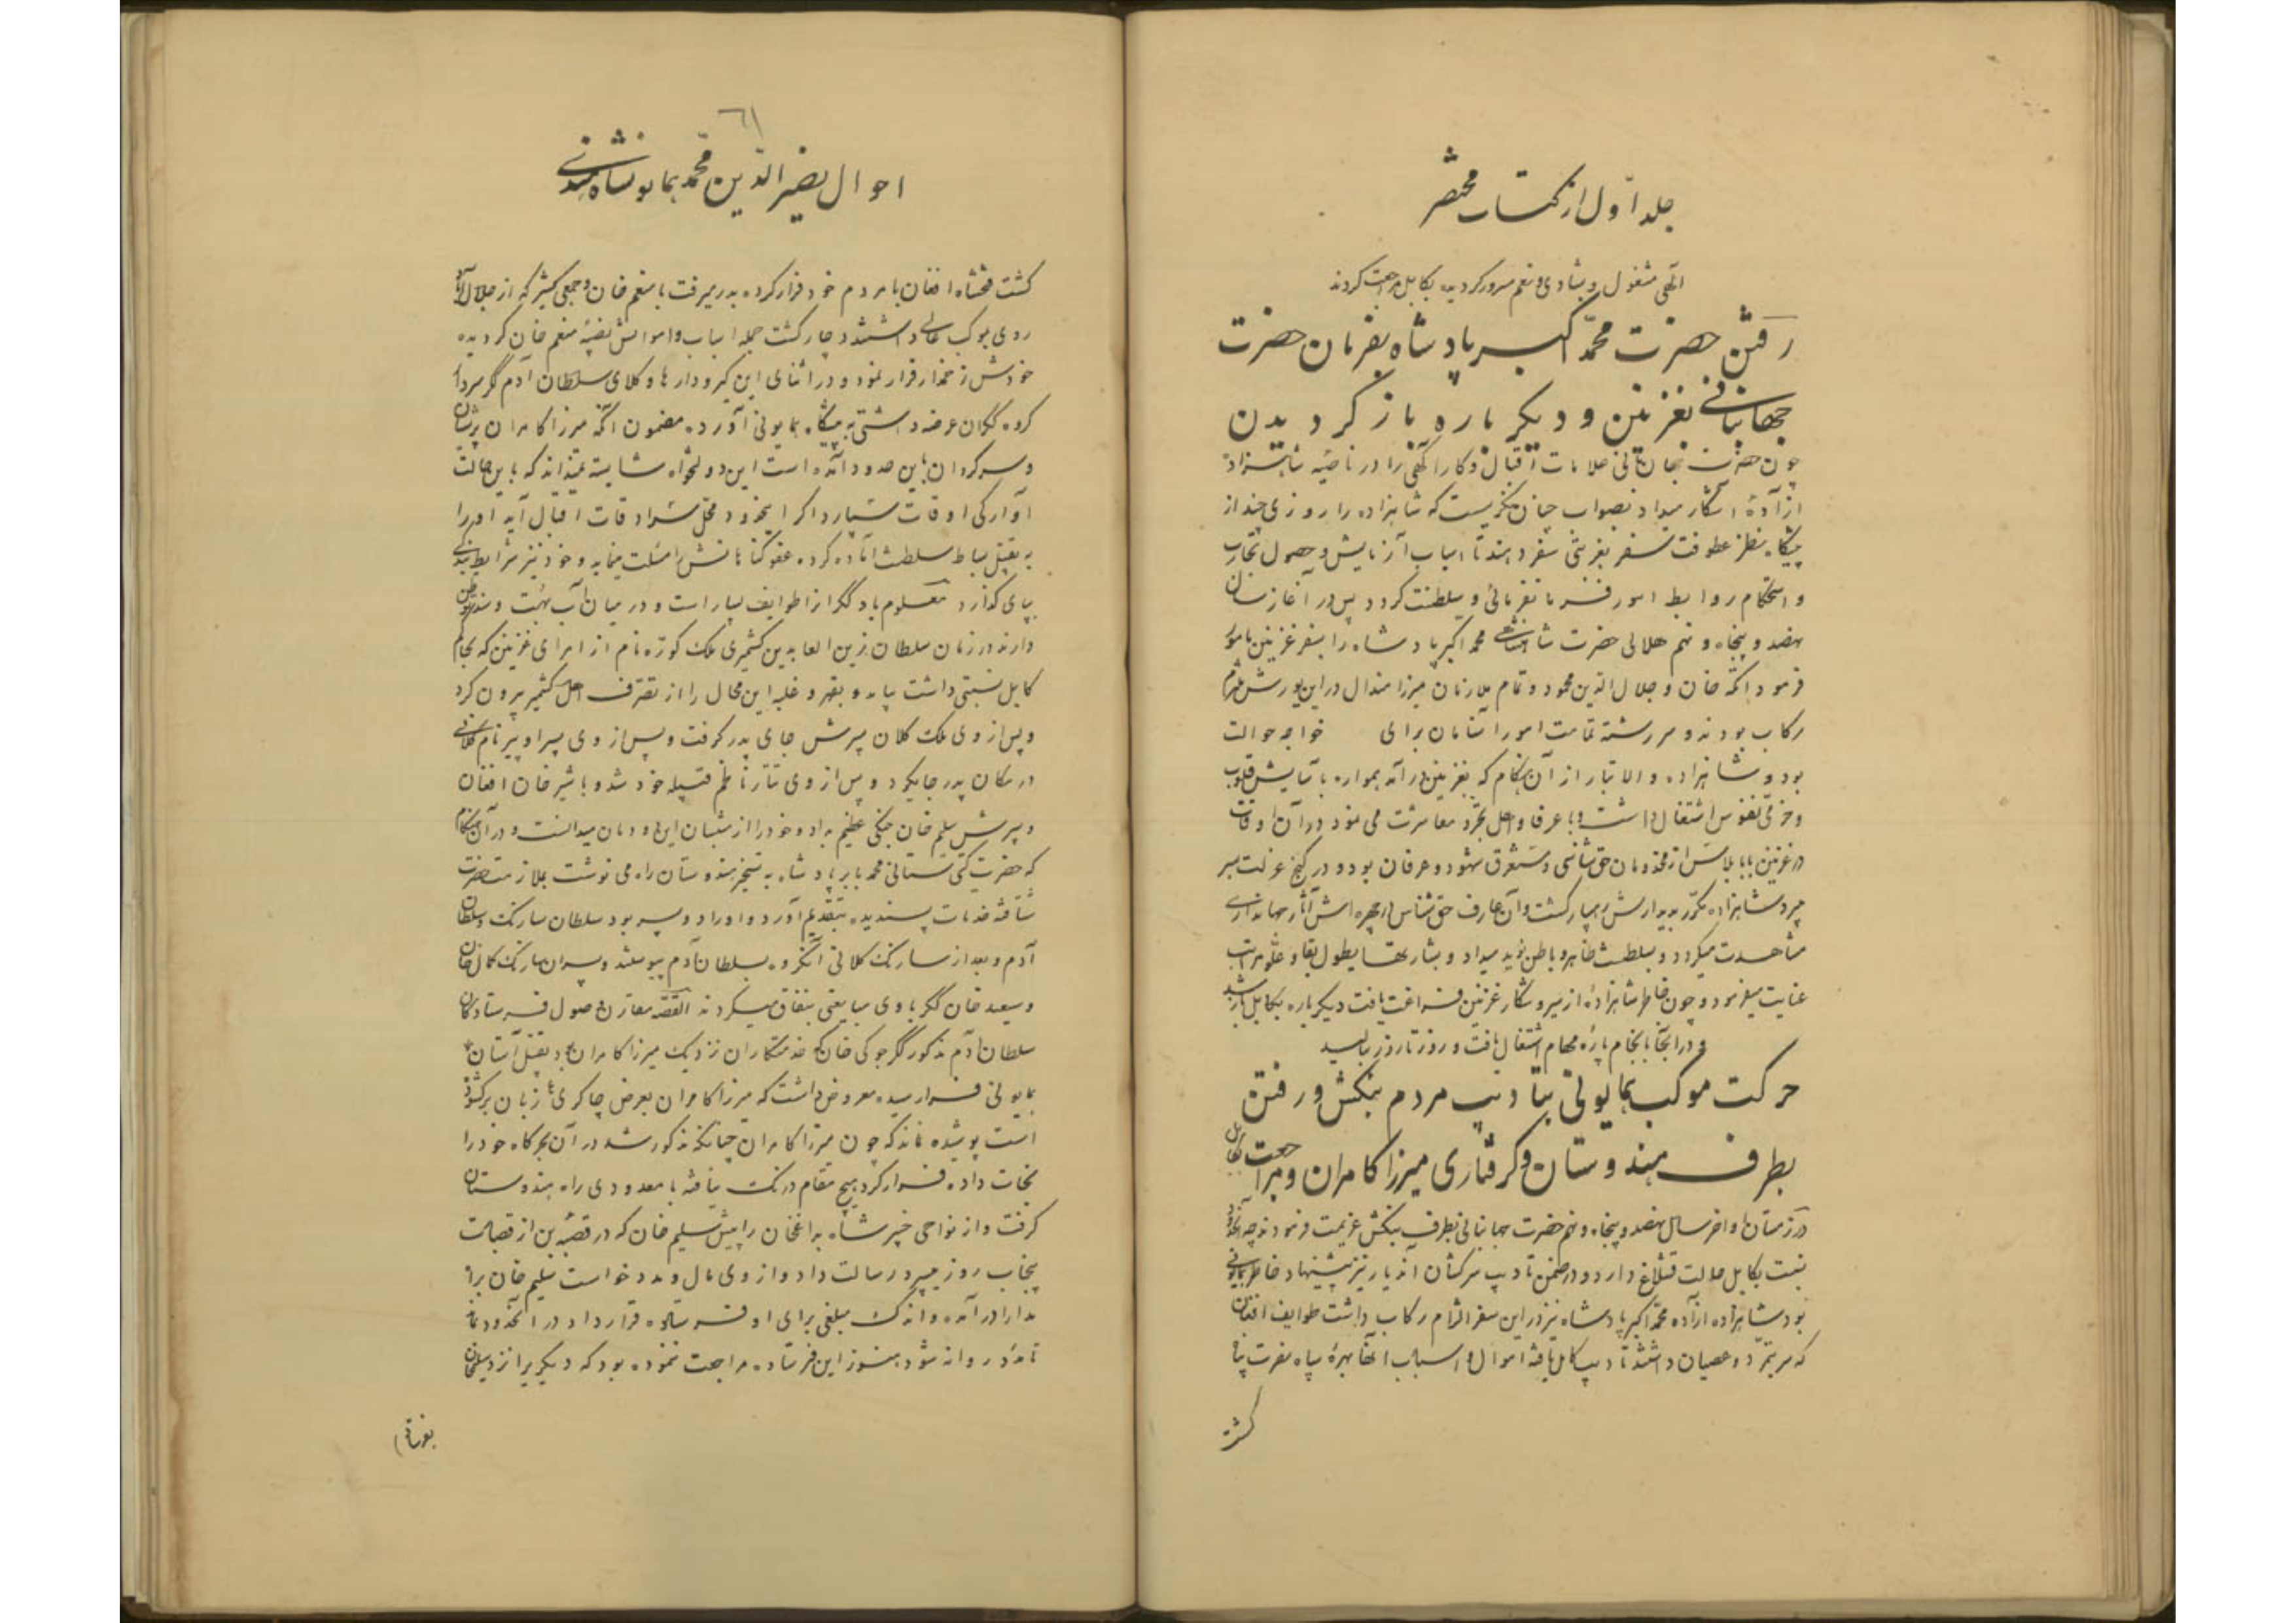 جلد اول از کتاب مختصر
الهی مشغول و بشادی و نعم مسرور گردیده بکابل مراجعت کردند
رفتن حضرت محمد اکبر پادشاه بفرمان حضرت
جهانبانی بغزنین و دیگر باره باز گردیدن
چون حضرت جهانبانی علامات اقبال و کارآگهی را در ناصیه شاهزاده
از آده آشکار میداد بصواب چنان نگریست که شاهزاده را روزی چند از
پیشگاه بنظر عطوفت سفر بغزنی سفر دهند تا اسباب آزمایش و حصول تجارب
و استحکام روابط امور فرمانفرمائی و سلطنت گردد پس در آغاز سال
نهصد و پنجاه و نهم هلالی حضرت شاهنشاهی محمد اکبر پادشاه را بسفر غزنین مامور
فرمود اتکه خان و جلال الدین محمود و تمام ملازمان میرزا هندال در این یورش ملتزم
رکاب بودند و سررشته تمامت امور آسامان برای خواجه حوالت
بود و شاهزاده والاتبار از آن هنگام که بغزنین در آمد همواره بآسایش قلوب
و خرمی نفوس اشتغال داشت و با عرفا و اهل تجرد معاشرت می نمود در آن اوقات
در غزنین بابا بلاس از مخدومان حق شناسی و مستغرق شهود و عرفان بود و در کنج عزلت بسر
میبرد شاهزاده مکرر بدیدارش رهسپار گشت و آن عارف حق شناس از چهره اش آثار جهانداری
مشاهدت میکرد و بسلطنت ظاهر و باطن نوید میداد و بشارتها بطول بقا و علو مراتب
عنایت میفرمود و چون خاطر شاهزاده از سیر و شکار غزنین فراغت یافت دیگر باره بکابل باز شد
و در آنجا بانجام پاره مهام اشتغال یافت و روز تا روز ببالید
حرکت موکب همایونی بتادیب مردم بنکش و رفتن
بطرف هندوستان و گرفتاری میرزا کامران و مراجعت بکابل
در زمستان اواخر سال نهصد و پنجاه و نهم حضرت جهانبانی بطرف بنکش عزیمت فرمودند چه آنحدود
نسبت بکابل حالت قشلاغ دارد و در ضمن تادیب سرکشان آندیار نیز پیشنهاد خاطر همایونی
بود شاهزاده آزاده محمد اکبر پادشاه نیز در این سفر التزام رکاب داشت طوایف افغان
که سر بتمرد و عصیان داشتند تادیب کامل یافته اموال و اسباب آنها بهره سپاه نصرت پناه
گشت
٦١
احوال نصیر الدین محمد همایونشاه هندی
گشت فتحشاه افغان با مردم خود فرار کرده بدر میرفت با منعم خان و جمعی کثیر که از جلال آباد
روی بموکب عالی داشتند دچار گشت جمله اسباب و اموالش نصیبه منعم خان گردیده
خودش زخمدار فرار نمود و در اثنای این گیرودارها وکلای سلطان آدم گکر سردار
گروه گکران عرضه داشتی به پیشگاه همایونی آورد به مضمون آنکه میرزا کامران پریشان
و سرگردان باین حدود آمده است این دولتخواه شایسته نمیداند که باین حالت
آوارگی اوقات بسپارد اگر اینحدود محل سرادقات اقبال آید او را
به تقبیل بساط سلطنت آماده کرده عفو گناهانش را مسئلت مینماید و خود نیز شرایط بندگی
بپای گذارد معلوم باد گکر از طوایف بسیار است و در میان آب بهت و سند وطن
دارند در زمان سلطان زین العابدین کشمیری ملک کوزه نام از امرای غزنین که بحکام
کابل نسبتی داشت بیامد و بقهر و غلبه این محال را از تصرف اهل کشمیر بیرون کرد
و پس از وی ملک کلان پسرش جای پدر گرفت و پس از وی پسر او پیر نام کلانی
در مکان پدر جا بگرد و پس از وی تتار ناظم قبیله خود شد و با شیر خان افغان
و پسرش سلیم خان جنگی عظیم بداد و خود را از منتسبان این دودمان میدانست و در آن هنگام
که حضرت گیتی ستانی محمد بابر پادشاه به تسخیر هندوستان راه می نوشت بملازمت حضرت
شتافته خدمات پسندیده بتقدیم آورد و او را دو پسر بود سلطان سارنک و سلطان
آدم و بعد از سارنک کلانی آنگروه بسلطان آدم پیوستند و پسران سارنک کمال خان
و سعید خان گکر با وی مبایعتی بنفاق میکردند القصه مقارن وصول فرستادگان
سلطان آدم مذکور گکر جوکی خان که خدمتکاران نزدیک میرزا کامران بود بتقبیل آستان
همایونی فرا رسیده معروض داشت که میرزا کامران بعرض چاکری زبان برگشوده
است پوشیده نماند که چون میرزا کامران چنانکه مذکور شد در آن بحرگاه خود را
نجات داده فرار کرد هیچ مقام درنگ نیافته با معدودی راه هندوستان
گرفت و از نواحی خیبر شاه بداغخان را پیش سلیم خان که در قصبه بن از قصبات
پنجاب روز میبرد رسالت داد و از وی مال و مدد خواست سلیم خان براه
مدارا در آمده و اندک مبلغی برای او فرستاده قرارداد در آنحدود بماند
تا مدد روانه شود هنوز این فرستاده مراجعت ننموده بود که دیگری را نزد سلیمخان
بفرستاد